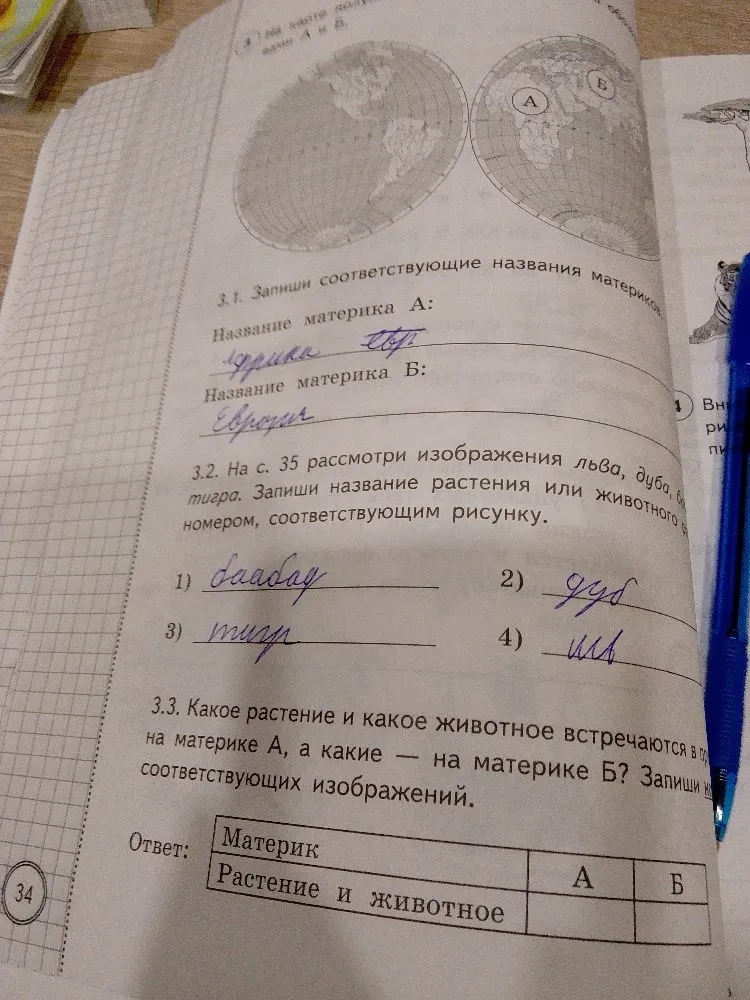 3 На карте
вами А и Б.
А
Б
3.1. Запиши соответствующие названия материков.
Название материка А:
фрика евр
Название материка Б:
Европа
3.2. На с. 35 рассмотри изображения льва, дуба,
тигра. Запиши название растения или животного
номером, соответствующим рисунку.
1) баабад
2) дуб
3) тигр
4)
3.3. Какое растение и какое животное встречаются в
на материке А, а какие — на материке Б? Запиши
соответствующих изображений.
Ответ:
Материк А Б
Растение и животное
34